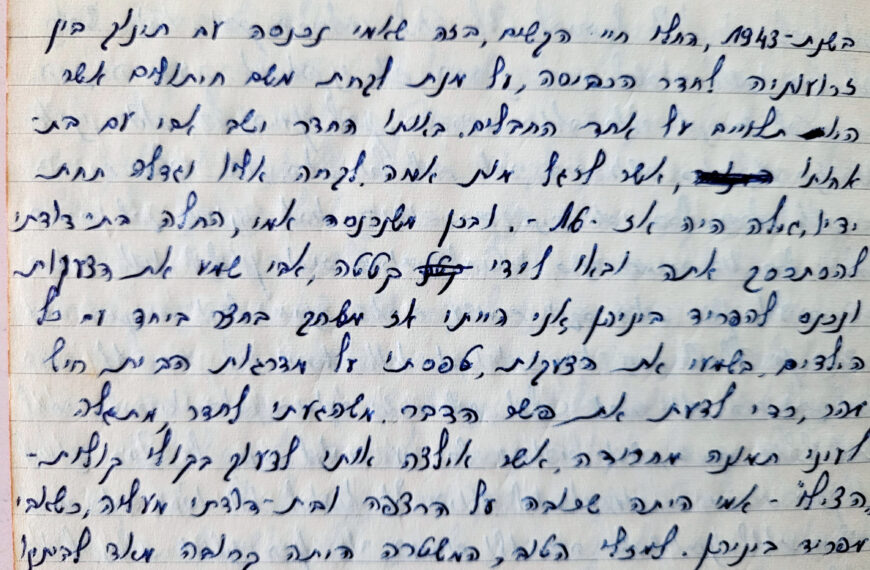 בשנת-1943, החלו חיי הקשים, בזה שאמי נכנסה עם תינוק בין
זרועותיה לחדר הכביסה, על מנת לקחת משם חיתולים אשר
היו תלויים על אחד החבלים. באותו החדר ישב אבי עם בת-
אחותו, אשר לרגל מות אמה לקחה אליו וגדלה תחת
ידיו, גילה היה אז -16-. ובכן משנכנסה אמי, החלה בת-דודתי
להסתכסך אתה ובאו לידי קטטה, אבי שמע את הצעקות
ונכנס להפריד ביניהן, אני הייתי אז משחק בחצר ביחד עם כל
הילדים, בשמעי את הצעקות, טפסתי על מדרגות הבית חיש
מהר, כדי לדעת את פשר הדבר. משהגעתי לחדר, מתגלה
לעיני תמונה מחרידה, אשר אילצה אותי לצעוק בקולי קולות-
"הצילו" - אמי היתה שכובה על הרצפה ובת-דודתי מעליה, כשאבי
מפריד ביניהן. למזלי הטוב, המשטרה היתה קרובה מאוד לביתנו